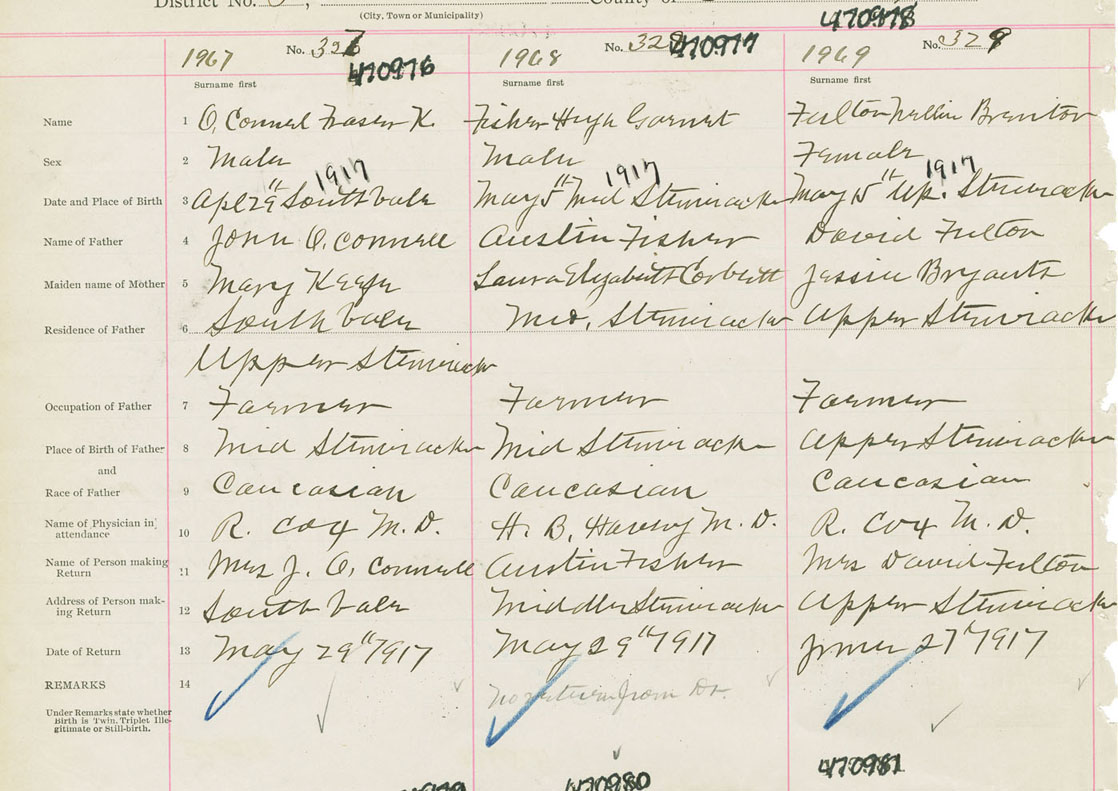 District No. , County of
(City, Town or Municipality)
470978
1967 No. 327 1968 No. 328 470977 1969 No. 329
470976
Surname first Surname first Surname first
Name 1 O, Connel Fraser K. Fisher Hugh Garnet Fulton Nellie Brenton
Sex 2 Male Male Female
1917 1917 1917
Date and Place of Birth 3 Apl 29th South Vale May 5th Mid Stewiacke May 15th Up. Stewiacke
Name of Father 4 John O, Connell Austin Fisher David Fulton
Maiden name of Mother 5 Mary Keefe Laura Elizabeth Corbett Jessie Bryants
Residence of Father 6 South Vale Mid, Stewiacke Upper Stewiacke
Upper Stewiacke
Occupation of Father 7 Farmer Farmer Farmer
Place of Birth of Father 8 Mid Stewiacke Mid Stewiacke Upper Stewiacke
and
Race of Father 9 Caucasian Caucasian Caucasian
Name of Physician in attendance 10 R. Cox M. D. H. B. Havey M. D. R. Cox M. D.
Name of Person making Return 11 Mrs J. O, Connell Austin Fisher Mrs David Fulton
Address of Person making Return 12 South Vale Middle Stewiacke Upper Stewiacke
Date of Return 13 May 29th 1917 May 29th 1917 June 27th 1917
REMARKS 14 No return from Dr.
Under Remarks state whether
Birth is Twin, Triplet Ille-
gitimate or Still-birth.
470980 470981